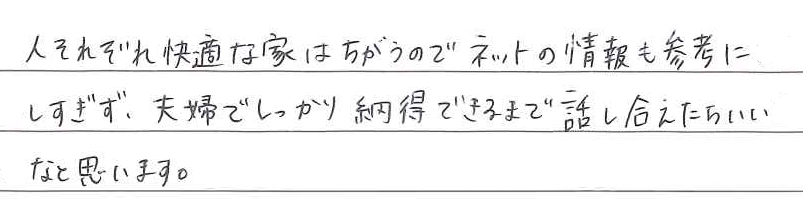 人それぞれ快適な家はちがうのでネットの情報も参考に
しすぎず、夫婦でしっかり納得できるまで話し合えたらいい
なと思います。